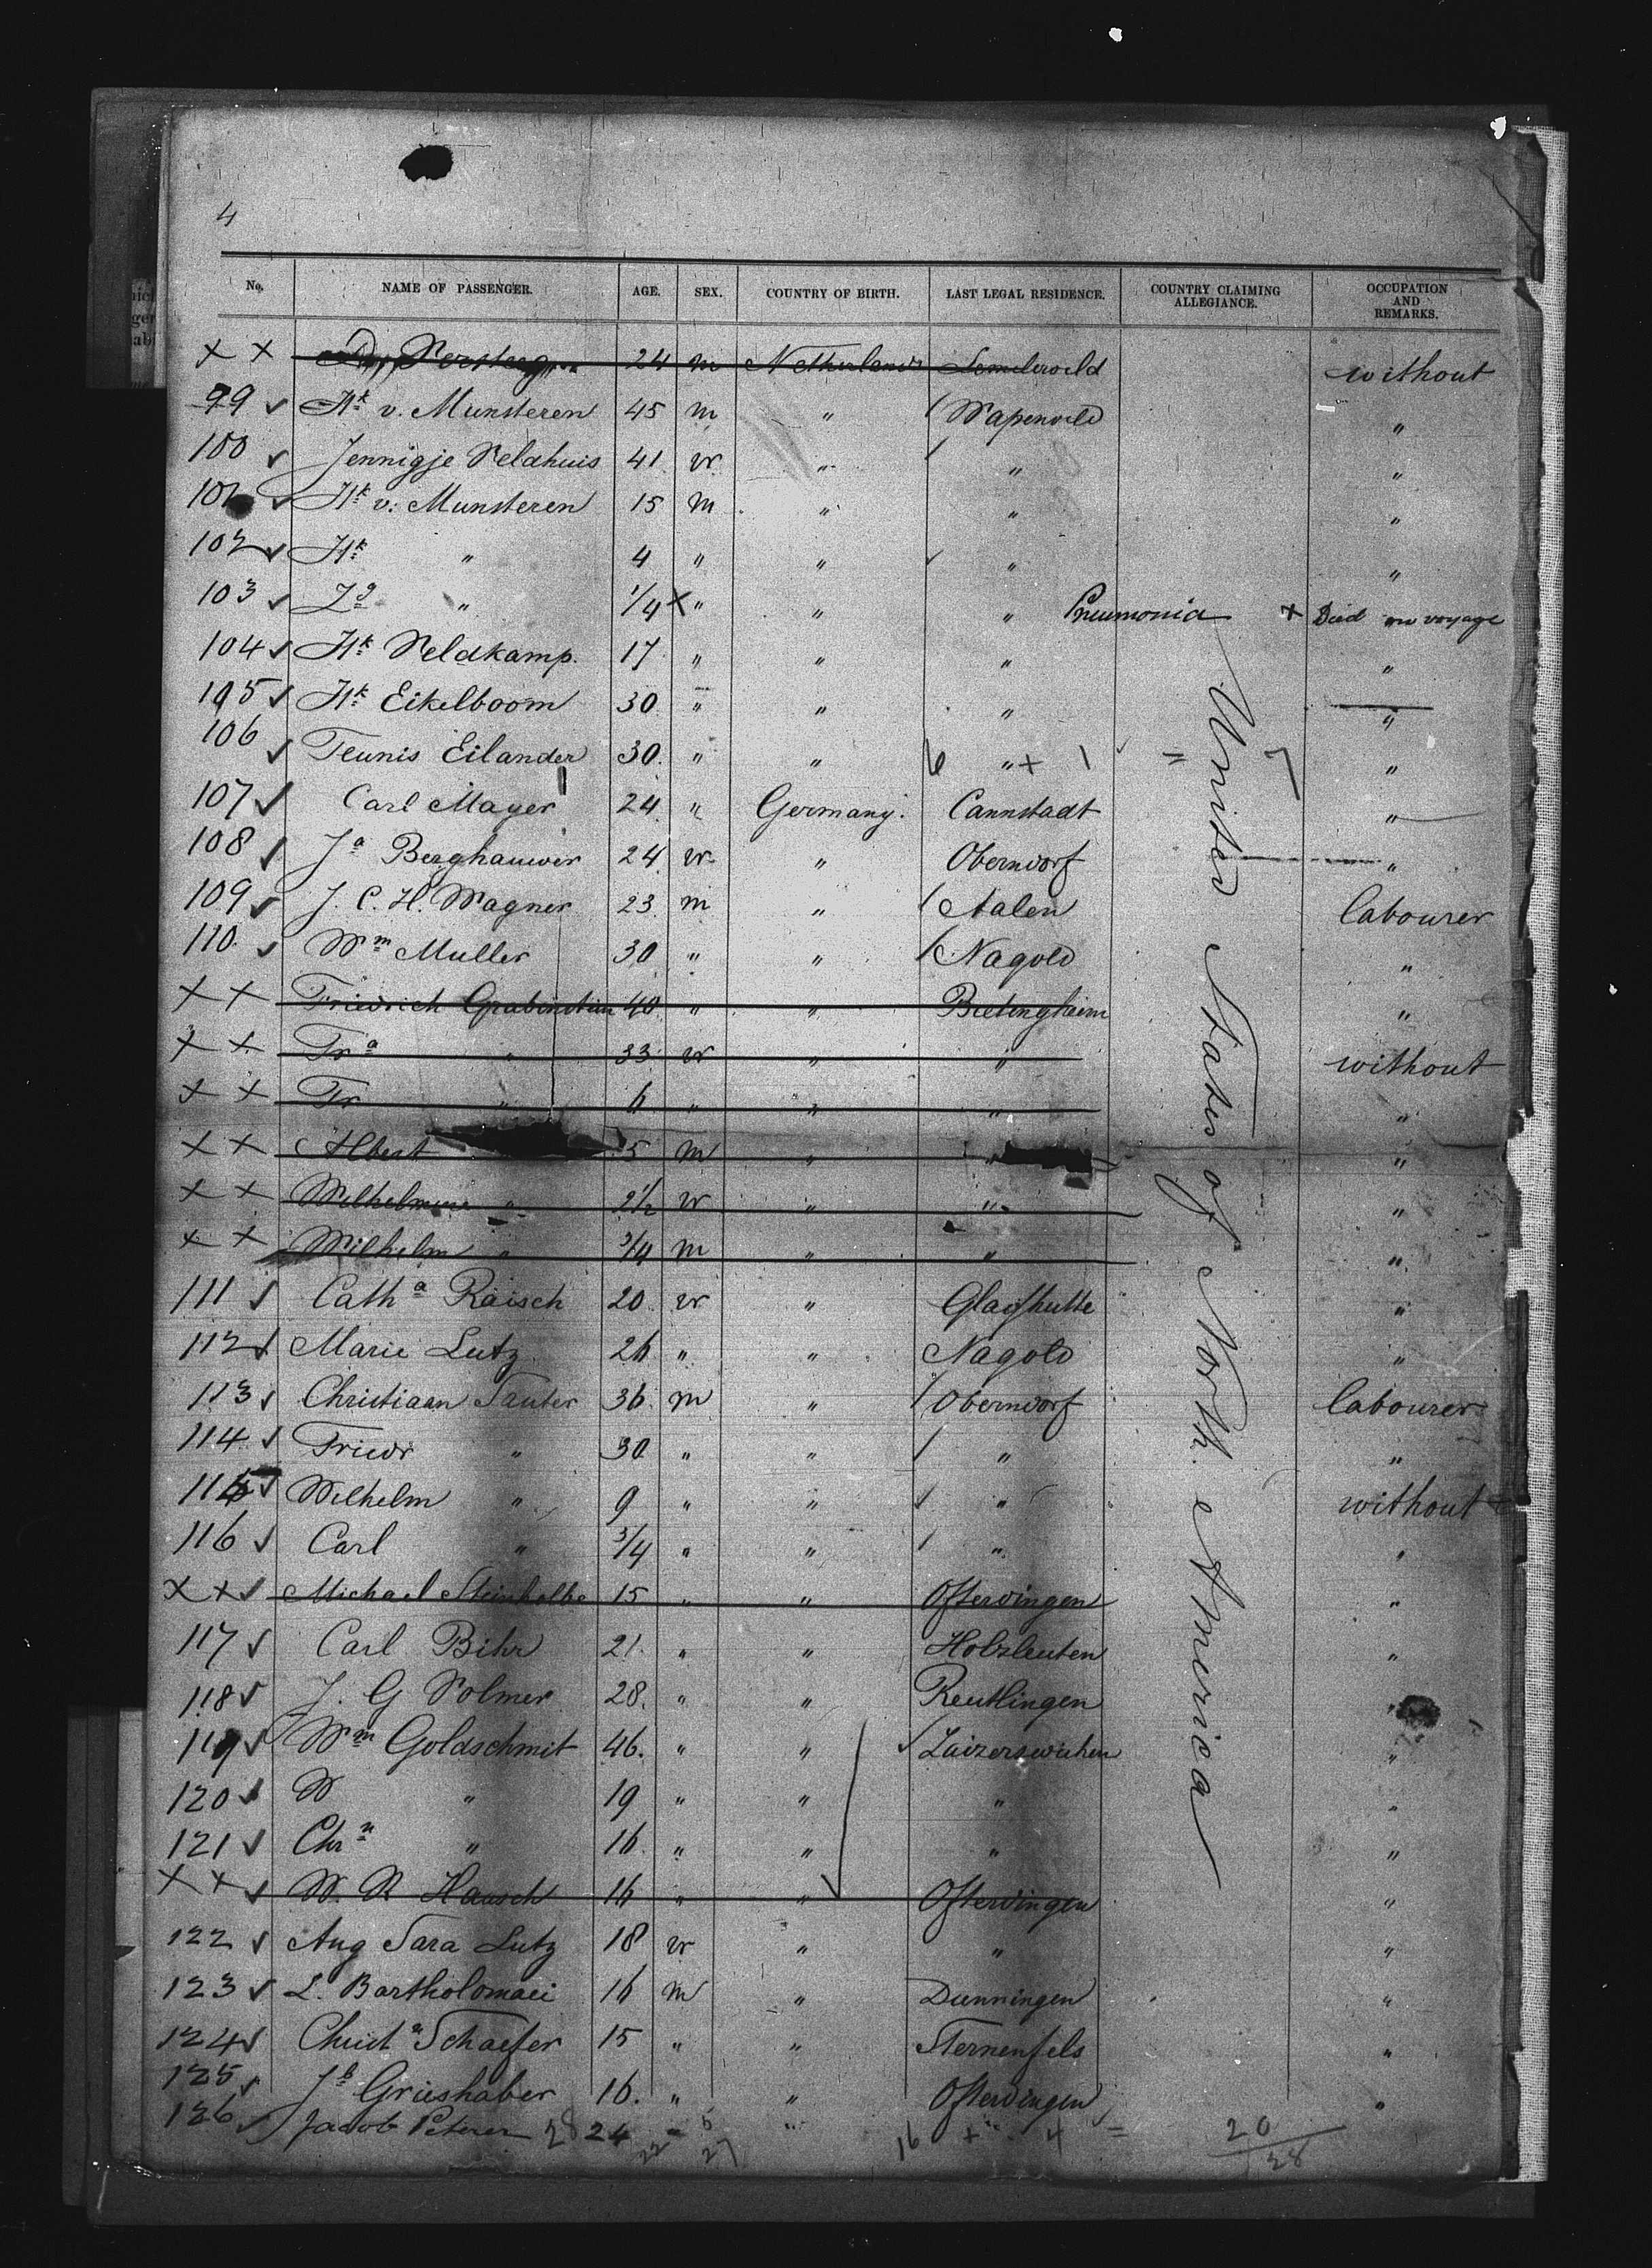 4
No. NAME OF PASSENGER. AGE. SEX. COUNTRY OF BIRTH. LAST LEGAL RESIDENCE. COUNTRY CLAIMING ALLEGIANCE. OCCUPATION AND REMARKS.
x x 24 m Netherlands without
99 ✓ Hk v. Munsteren 45 m " / Wapenveld "
100 ✓ Jennigje Veldhuis 41 w " / " "
101 ✓ Hk v. Munsteren 15 m " " "
102 ✓ Hk " 4 " " ✓ " "
103 ✓ " 1/4 x " " " Pneumonia x Died on voyage
104 ✓ Hk Veldkamp. 17 " " " "
105 ✓ Hk Eikelboom 30 " " " "
106 ✓ Teunis Eilander 30. " " 6 " + 1 = 7 "
107 ✓ Carl Mayer 24 " Germany. Cannstadt "
108 ✓ Ja Berghauwer 24 w " Oberndorf "
109 ✓ J. C. H. Wagner 23 m " / Aalen labourer
110. ✓ Wm Muller 30 " " / Nagold "
x x Friedrich Grabenstein 40 " " Bietingheim "
x x Fra " 33 w " " without
x x Fr " 6 " " " "
x x Albert 5 m " " "
x x Wilhelmine " 2 1/2 w " " "
x x Wilhelm " 3/4 m " " "
111 ✓ Catha Raisch 20 w " Glashutte "
112 ✓ Marie Lutz 26 " " Nagold "
113 ✓ Christiaan Sauter 36 m " / Oberndorf labourer
114 ✓ Friedr " 30 " " / " "
115 ✓ Wilhelm " 9 " " ✓ " without
116 ✓ Carl " 3/4 " " / " "
x x ✓ Michael 15 " " Ofterdingen "
117 ✓ Carl Bihr 21 " " Holzleuten "
118 ✓ J. G Volmer 28. " " Reutlingen "
119 ✓ Wm Goldschmit 46. " " ✓ "
120 ✓ W " 19 " " " "
121 ✓ Chrn " 16 " " " "
x x ✓ W. R Hausch 16 " " Ofterdingen "
122 ✓ Aug Sara Lutz 18 w " " "
123 ✓ L. Bartholomaei 16 m " Dunningen "
124 ✓ Christn Schaefer 15 " " Sternenfels "
125 ✓ Jb Grieshaber 16. " " Ofterdingen "
126 ✓ Jacob Peterer 28 24 22 - 5 27 " 16 + " 4 = 20 28
United States of North America